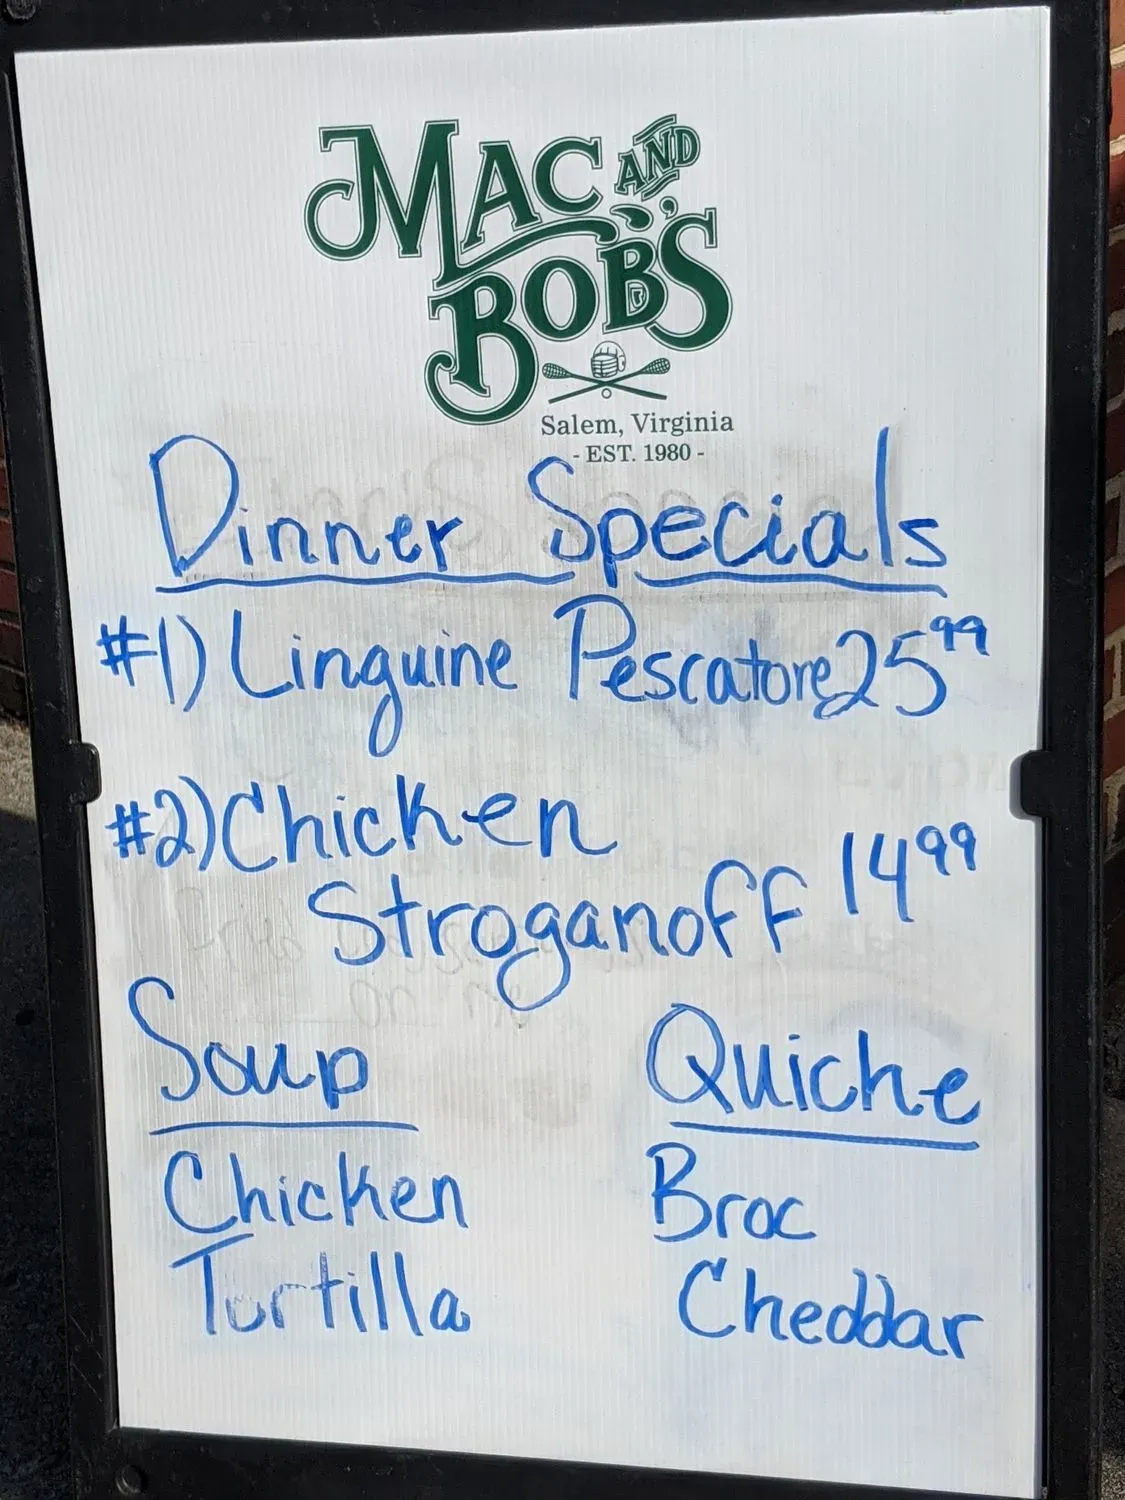 MAC AND
BOB'S
Salem, Virginia
- EST. 1980 -
Dinner Specials
#1) Linguine Pescatore 25⁹⁹
#2) Chicken
Stroganoff 14⁹⁹
Soup
Chicken
Tortilla
Quiche
Broc
Cheddar